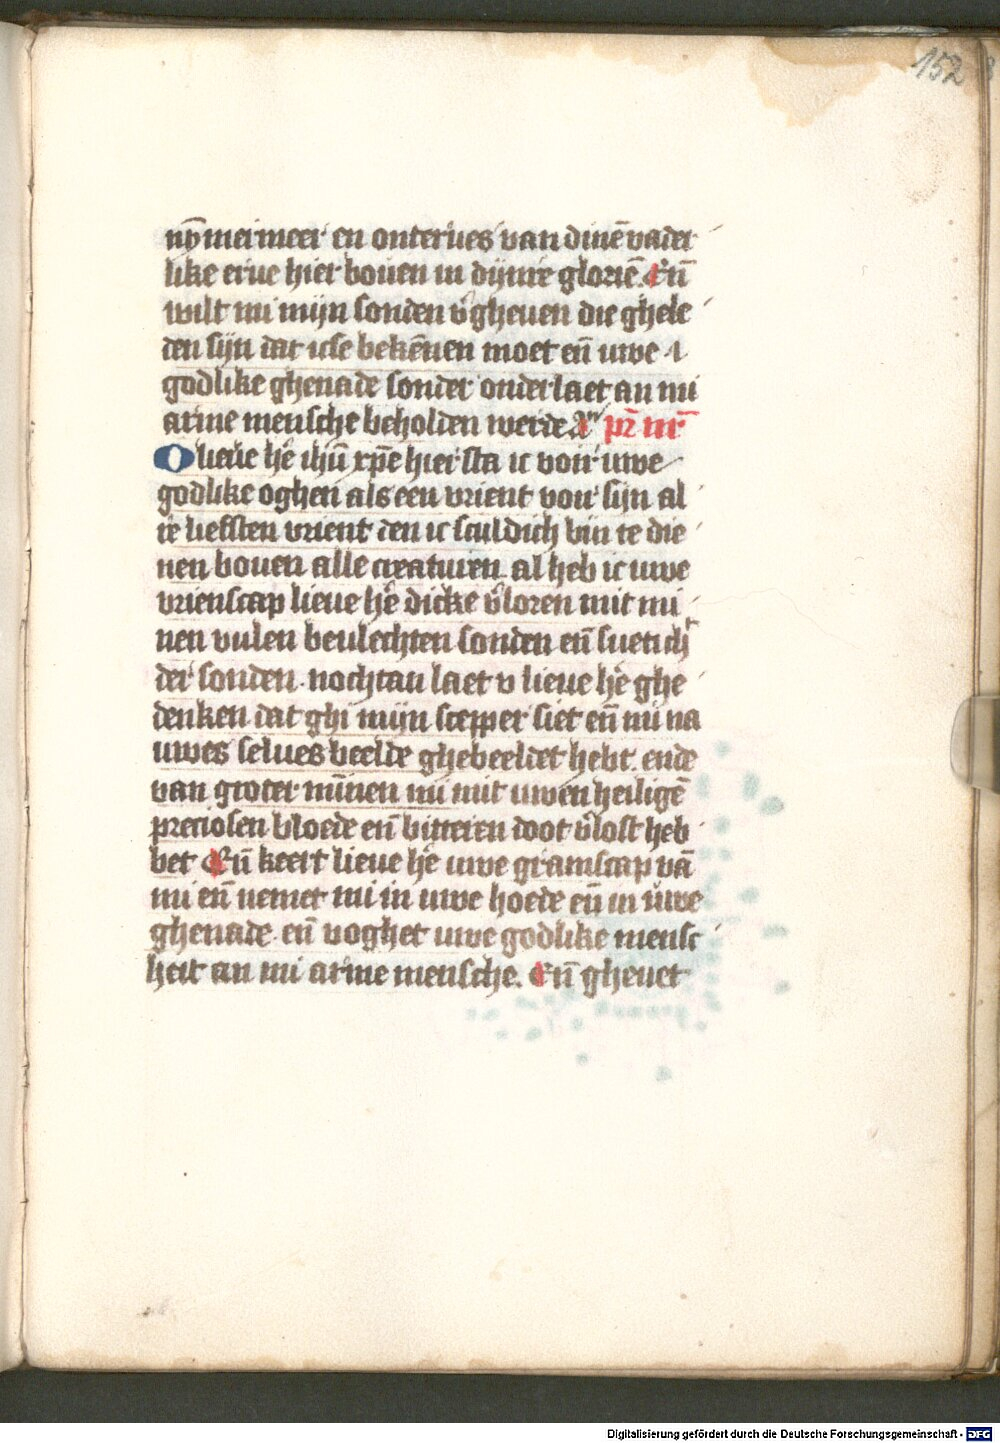 152
nȳmermeer en onterues van dinē vader
like erue hier bouen in dijnre gloriē. Eñ
wilt mi mijn sonden v̄gheuen die ghele
den sijn dat icse bekēnen moet eñ uwe
godlike ghenade sonder onderlaet an mi
arme mensche beholden werde Am̄ pr̄ nr̄
O lieue hē ihū xp̄e hier sta ic vour uwe
godlike oghen als een vrient vour sijn al
re liefsten vrient den ic sculdich bin te die
nen bouen alle creaturen. al heb ic uwe
vrienscap lieue hē dicke v̄loren mit mi
nen vulen beulechten sonden eñ
der sonden. nochtan laet v lieue hē ghe
denken dat ghi mijn scepper siet eñ mi na
uwes selues beelde ghebeeldet hebt. ende
van groter mīnen mi mit uwen heiligē
preciosen bloede eñ bitteren doot v̄lost heb
bet Eñ keert lieue hē uwe gramscap vā
mi eñ nemet mi in uwe hoede eñ in uwe
ghenade. eñ voghet uwe godlike mensc
heit an mi arme mensche. Eñ gheuet
Digitalisierung gefördert durch die Deutsche Forschungsgemeinschaft - DFG